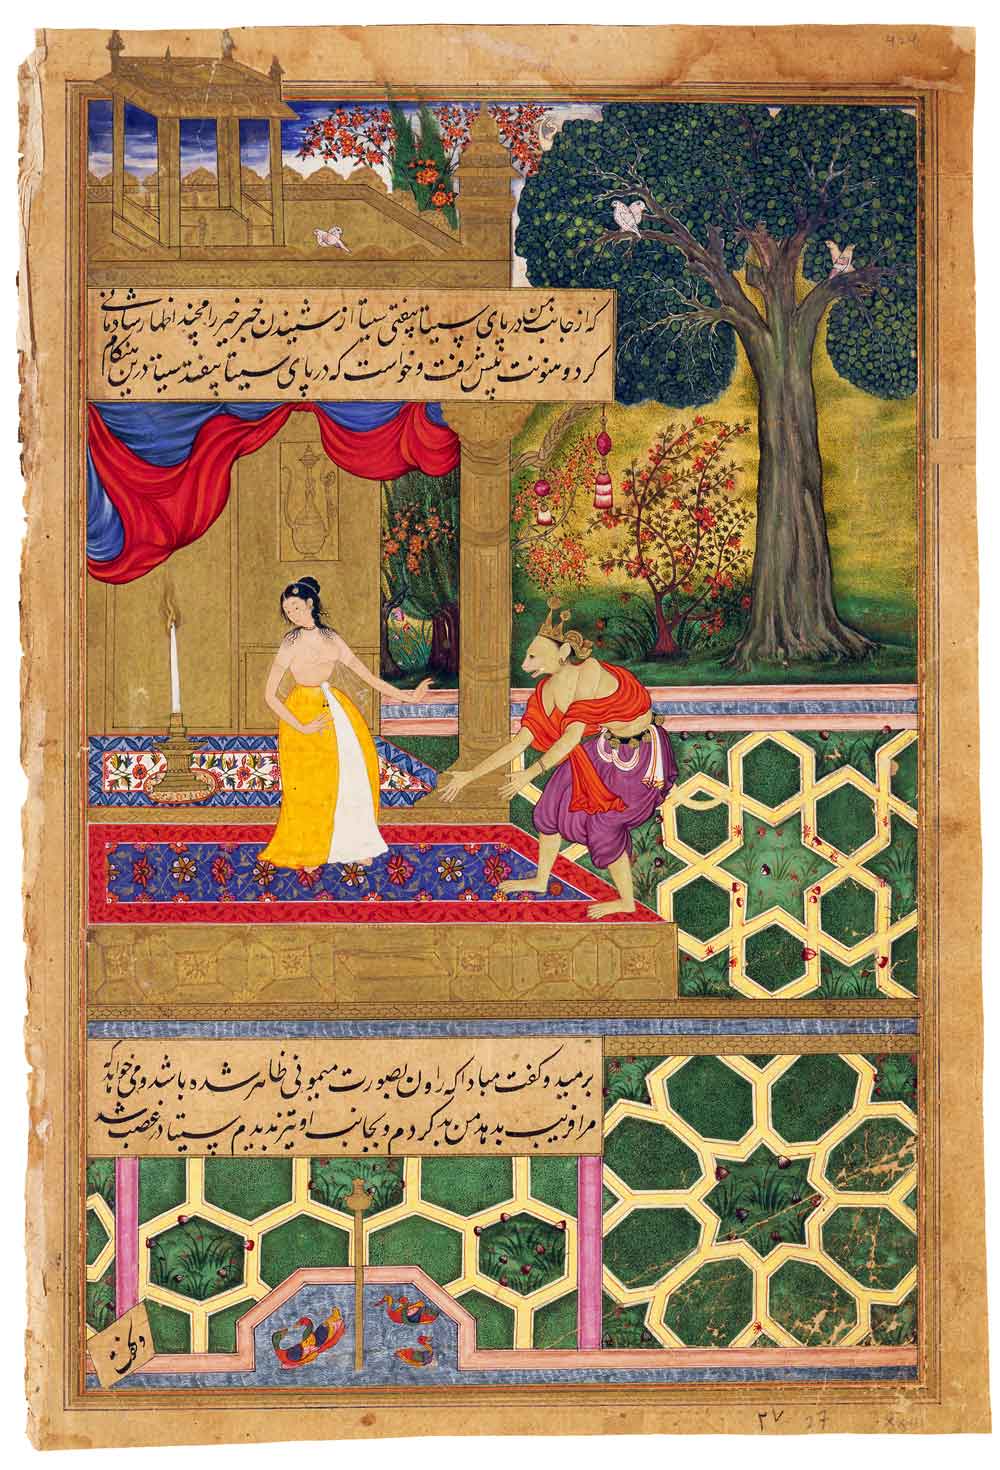 424
که از جانب من در پای سیتا بیفتی سیتا از شنیدن خبر خیر رامچند اظهار شادمانی
کرد و هنونت پیش رفت و خواست که در پای سیتا بیفتد سیتا درین هنگام
برمید و گفت مبادا که راون بصورت میمونی ظاهر شده باشد و می خواهد که
مرا فریب بدهد من بد کردم و بجانب او تیز ندیدم سیتا در غضب شد
۲۷ 27